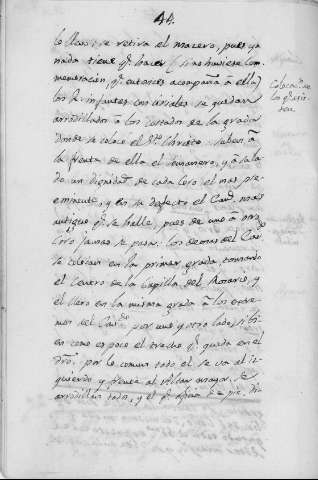 44.
lo lleva; se retira el macero, pues ya
nada tiene q.e hacer (si no huviese con
memeracån, q.e entonces acompaña à ella)
los S. infantes con ciriales se quedan
arrodillados à los costados de la grada
donde se coloca el S.to Christo. suben à
la frente de ella el semanero, y à su la
do un dignidad de cada Coro el mas pre
eminente, y en su defecto el Can.o mas
antiguo q.e se halle, pues de uno à otro
Coro jamas se pasa: los demas del Cav.do
se colocan en la primer grada, tomando
el Centro de la Capilla del Rosario, y
el Clero en la misma grada à los extre
mos del Cav.do por uno y otro lado, si bi
en como es poco el trecho q.e queda en el
dro. por lo comun todo el se va al iz
quierdo y frente al Altar mayor. Se
arrodillan todos, y el
Colocac.n de
los q.e asis
ten